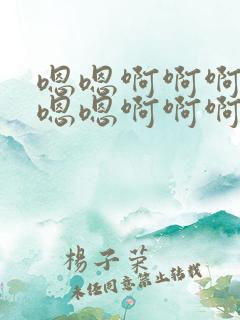 嗯嗯啊啊啊
嗯嗯啊啊啊
楊子荣
未任同意禁止转载